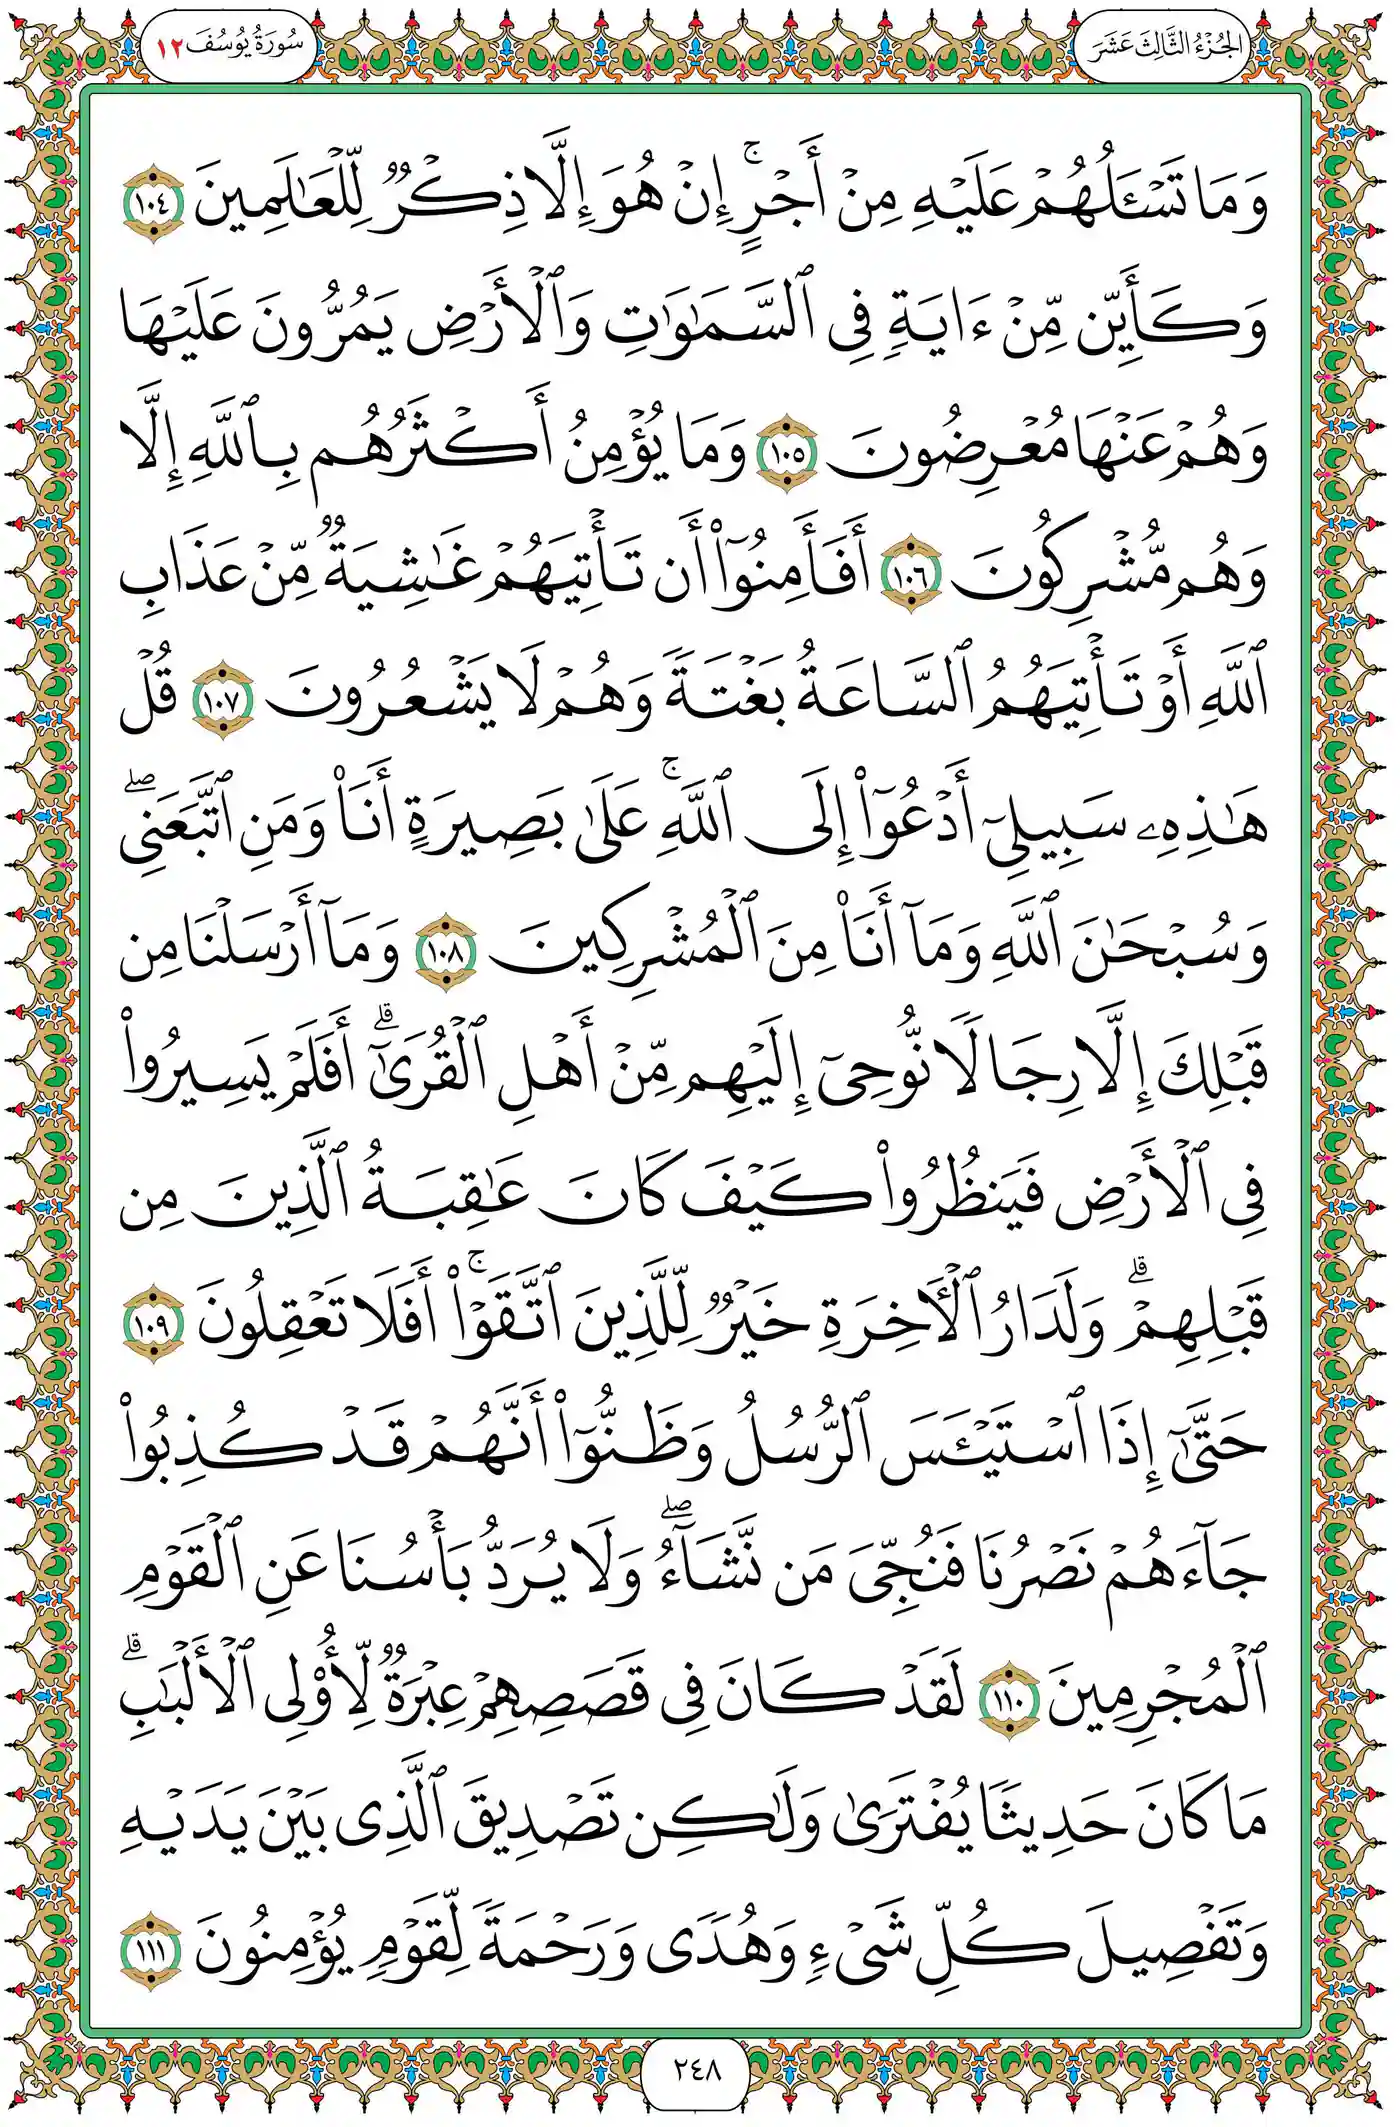 الجُزْءُ الثَّالِثَ عَشَرَ
سُورَةُ يُوسُفَ ١٢
وَمَا تَسْـَٔلُهُمْ عَلَيْهِ مِنْ أَجْرٍ ۚ إِنْ هُوَ إِلَّا ذِكْرٌ لِّلْعَـٰلَمِينَ ١٠٤
وَكَأَيِّن مِّنْ ءَايَةٍ فِى ٱلسَّمَـٰوَٰتِ وَٱلْأَرْضِ يَمُرُّونَ عَلَيْهَا
وَهُمْ عَنْهَا مُعْرِضُونَ ١٠٥ وَمَا يُؤْمِنُ أَكْثَرُهُم بِٱللَّهِ إِلَّا
وَهُم مُّشْرِكُونَ ١٠٦ أَفَأَمِنُوٓا۟ أَن تَأْتِيَهُمْ غَـٰشِيَةٌ مِّنْ عَذَابِ
ٱللَّهِ أَوْ تَأْتِيَهُمُ ٱلسَّاعَةُ بَغْتَةً وَهُمْ لَا يَشْعُرُونَ ١٠٧ قُلْ
هَـٰذِهِۦ سَبِيلِىٓ أَدْعُوٓا۟ إِلَى ٱللَّهِ ۚ عَلَىٰ بَصِيرَةٍ أَنَا۠ وَمَنِ ٱتَّبَعَنِى ۖ
وَسُبْحَـٰنَ ٱللَّهِ وَمَآ أَنَا۠ مِنَ ٱلْمُشْرِكِينَ ١٠٨ وَمَآ أَرْسَلْنَا مِن
قَبْلِكَ إِلَّا رِجَالًا نُّوحِىٓ إِلَيْهِم مِّنْ أَهْلِ ٱلْقُرَىٰٓ ۗ أَفَلَمْ يَسِيرُوا۟
فِى ٱلْأَرْضِ فَيَنظُرُوا۟ كَيْفَ كَانَ عَـٰقِبَةُ ٱلَّذِينَ مِن
قَبْلِهِمْ ۗ وَلَدَارُ ٱلْـَٔاخِرَةِ خَيْرٌ لِّلَّذِينَ ٱتَّقَوْا۟ ۚ أَفَلَا تَعْقِلُونَ ١٠٩
حَتَّىٰٓ إِذَا ٱسْتَيْـَٔسَ ٱلرُّسُلُ وَظَنُّوٓا۟ أَنَّهُمْ قَدْ كُذِبُوا۟
جَآءَهُمْ نَصْرُنَا فَنُجِّىَ مَن نَّشَآءُ ۖ وَلَا يُرَدُّ بَأْسُنَا عَنِ ٱلْقَوْمِ
ٱلْمُجْرِمِينَ ١١٠ لَقَدْ كَانَ فِى قَصَصِهِمْ عِبْرَةٌ لِّأُو۟لِى ٱلْأَلْبَـٰبِ ۗ
مَا كَانَ حَدِيثًا يُفْتَرَىٰ وَلَـٰكِن تَصْدِيقَ ٱلَّذِى بَيْنَ يَدَيْهِ
وَتَفْصِيلَ كُلِّ شَىْءٍ وَهُدًى وَرَحْمَةً لِّقَوْمٍ يُؤْمِنُونَ ١١١
٢٤٨